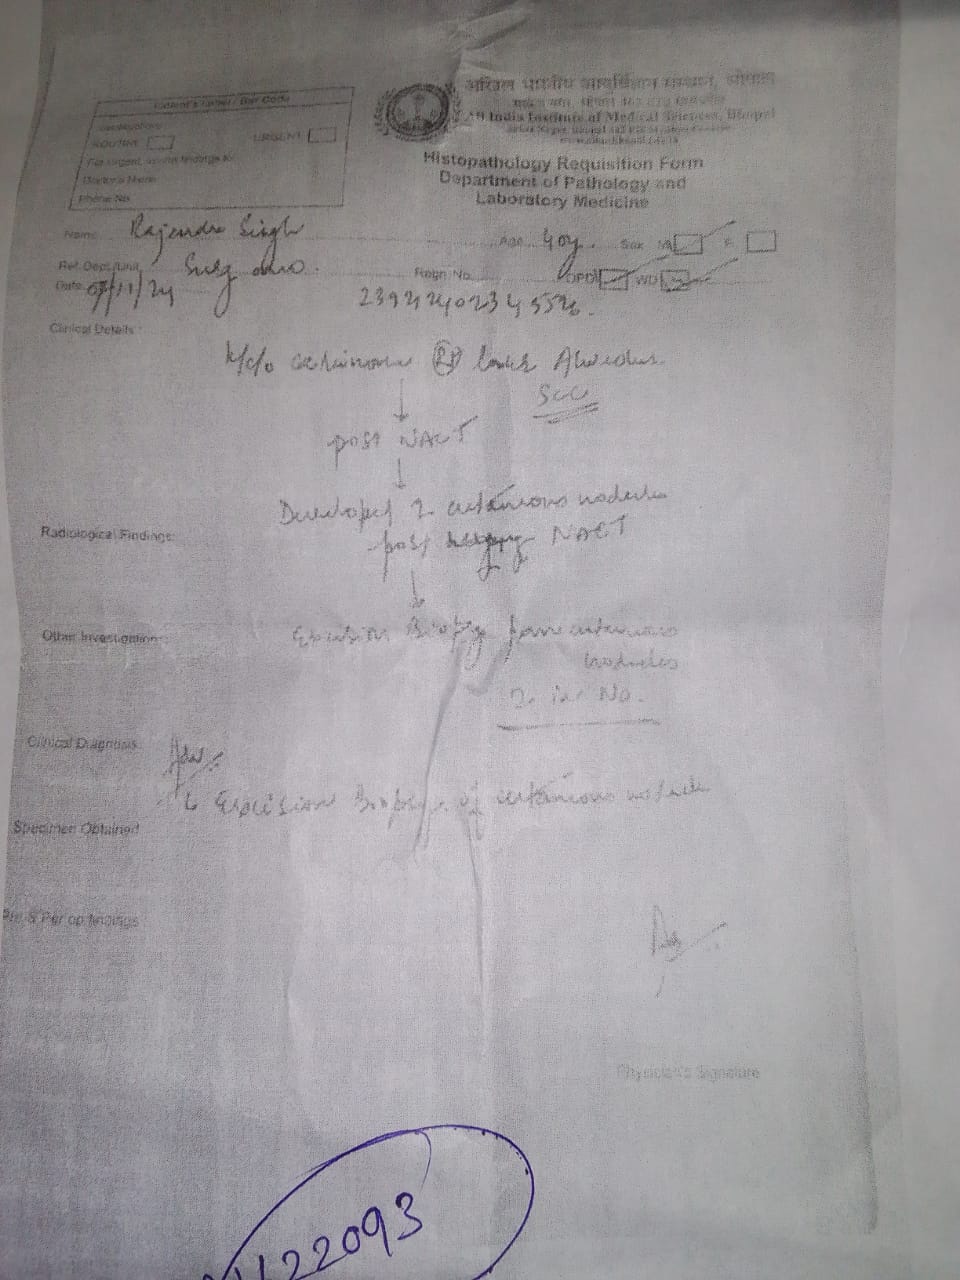 Patient's Label / Bar Code
ROUTINE URGENT
Doctor's Name
Phone No
अखिल भारतीय आयुर्विज्ञान संस्थान, भोपाल
All India Institute of Medical Sciences, Bhopal
Histopathology Requisition Form
Department of Pathology and
Laboratory Medicine
Name Rajendra Singh Age 40y. Sex M F
Ref. Dept./Unit Surg onco. Regn No. OPD WD
Date 07/11/24
Clinical Details:
k/c/o carcinoma Rt lower Alveolus.
SCC
post NACT
Developed 2 cutaneous nodules
Radiological Findings: post NACT
Other Investigation: Excision Biopsy from cutaneous
nodules
2 in No.
Clinical Diagnosis
Adv:
Excision Biopsy of cutaneous nodule
Specimen Obtained
Pre & Per op findings
Physician's Signature
22093